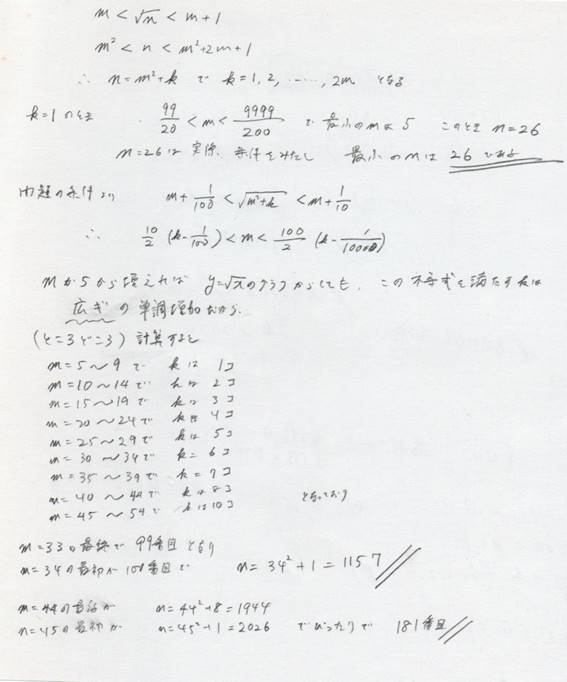 m < √n < m+1
m² < n < m²+2m+1
∴ n=m²+k で k=1, 2, ‥‥‥, 2m となる
k=1のとき 99/20 < m < 9999/200 で 最小のmは5 このとき n=26
n=26は 実際、条件をみたし 最小のnは 26 である
問題の条件より m+1/100 < √(m²+k) < m+1/10
∴ 10/2 (k-1/100) < m < 100/2 (k-1/10000)
mが5から増えれば y=√xのグラフからしても、この不等式を満たすkは
広ギの単調増加だから
(ところどころ) 計算すると
m=5～9で kは 1コ
m=10～14で kは 2コ
m=15～19で kは 3コ
m=20～24で kは 4コ
m=25～29で kは 5コ
m=30～34で k= 6コ
m=35～39で k= 7コ
m=40～44で kは 8コ
m=45～54で kは10コ となっており
m=33の最終で 99番目となり
m=34の最初が 100番目で n=34²+1=1157
m=44の最後が n=44²+8=1944
m=45の最初が n=45²+1=2026 でぴったりで 181番目